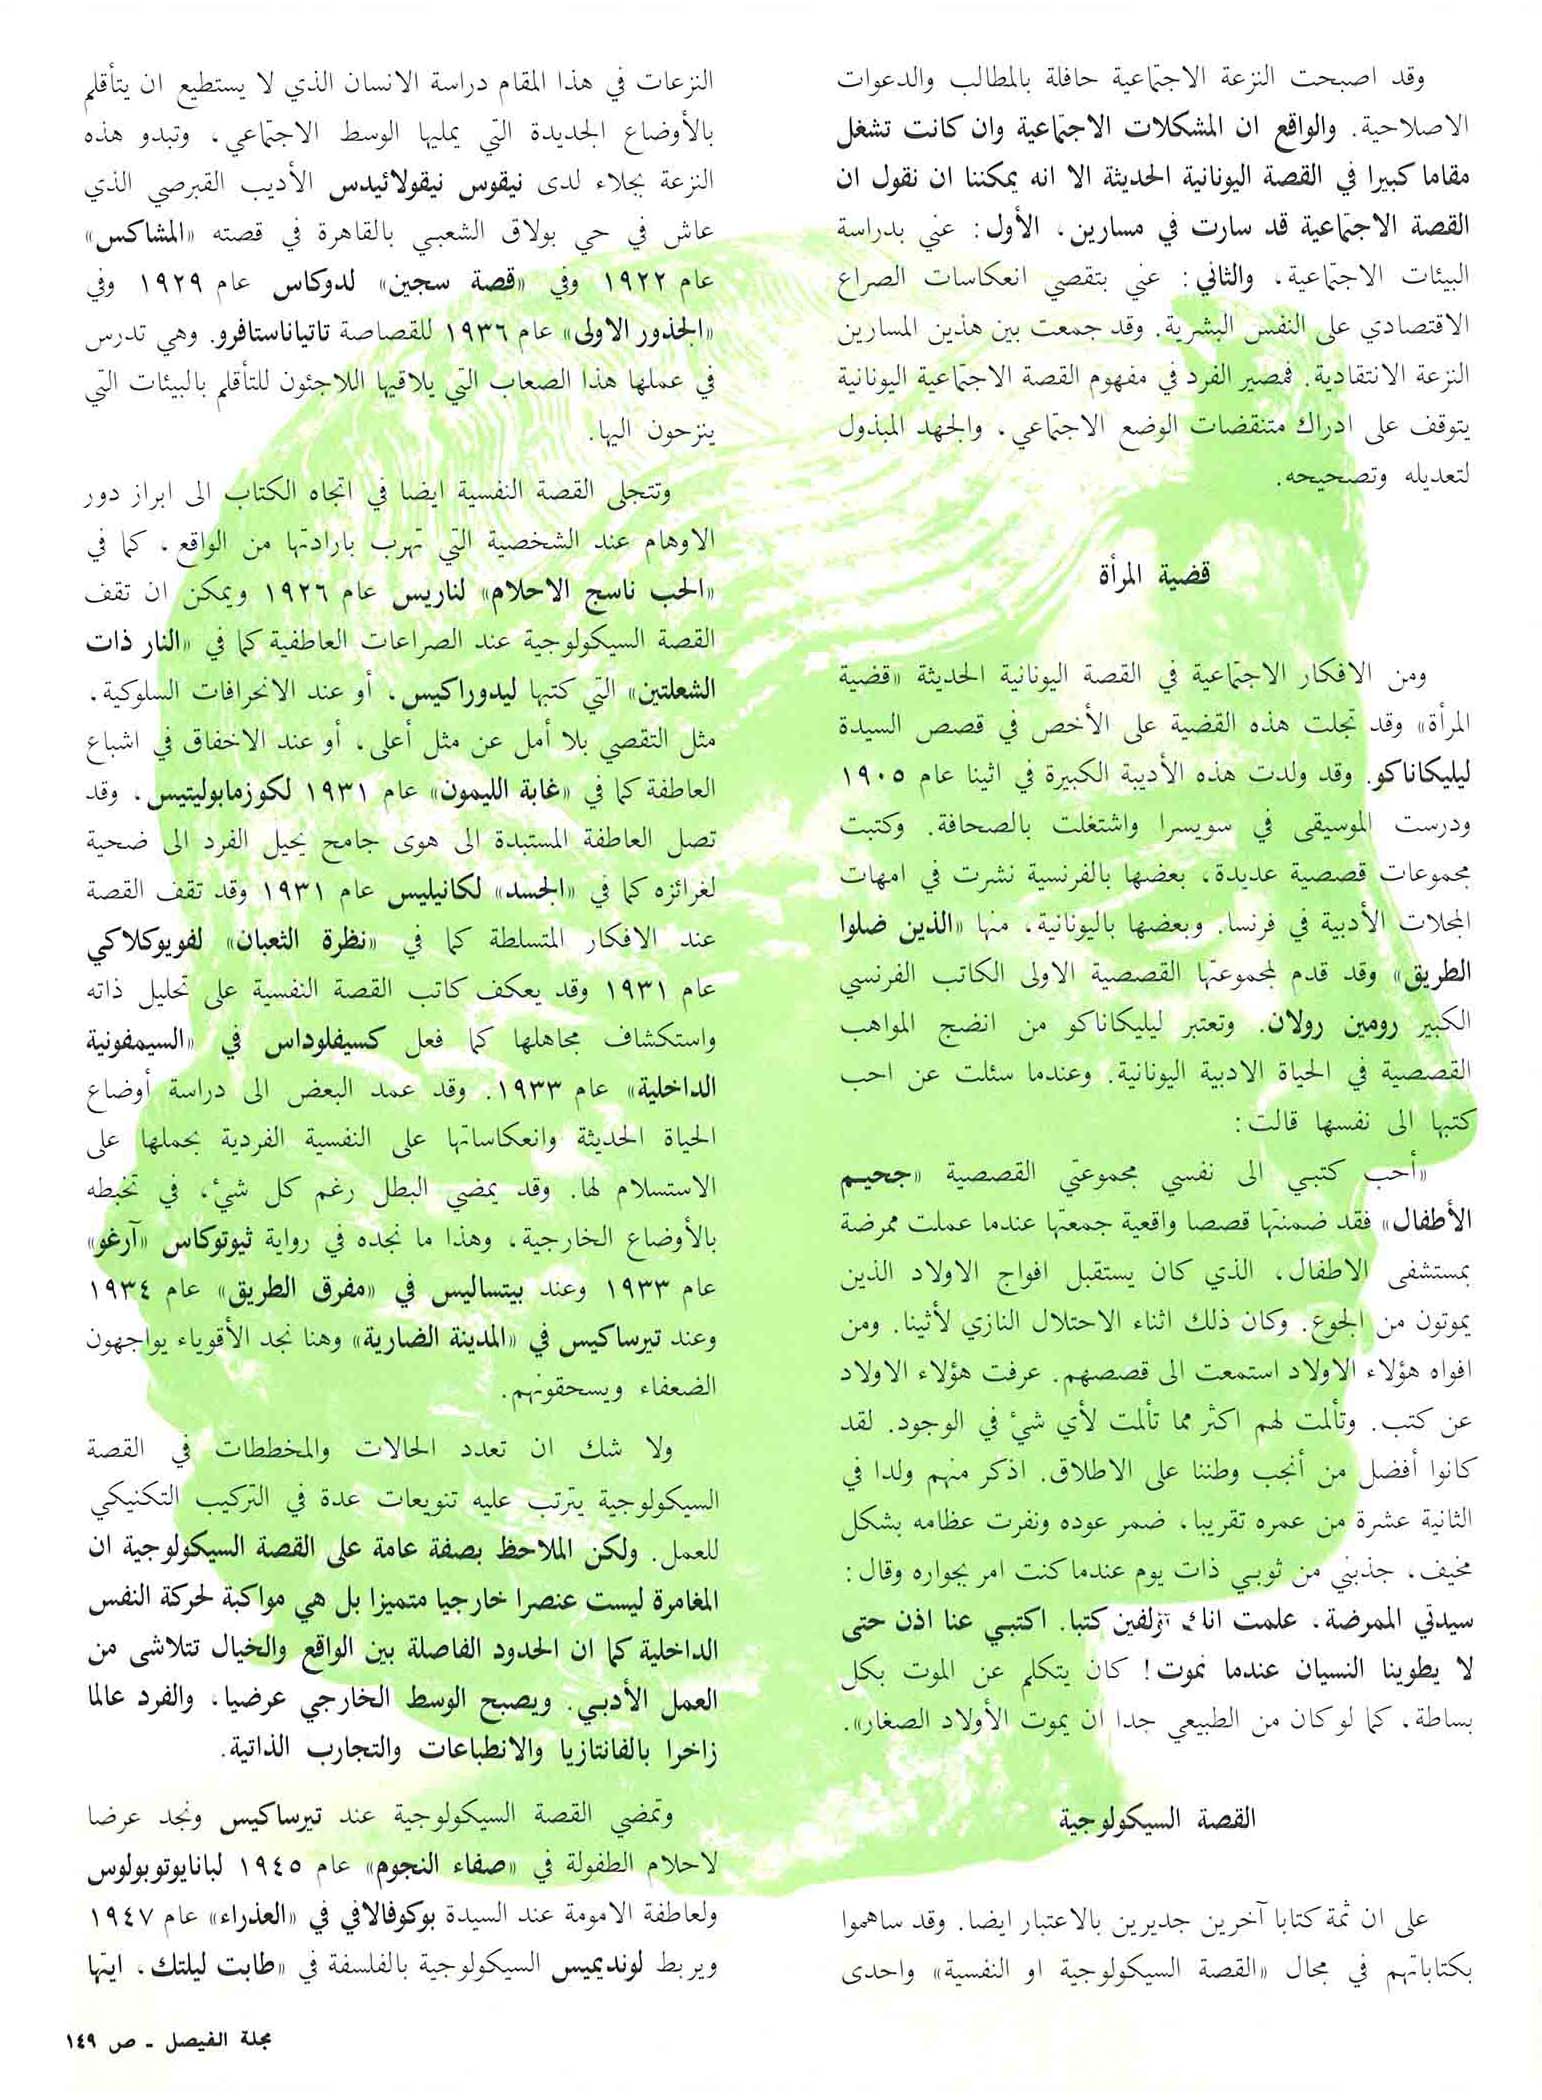 وقد اصبحت النزعة الاجتماعية حافلة بالمطالب والدعوات
الاصلاحية. والواقع ان المشكلات الاجتماعية وان كانت تشغل
مقاما كبيرا في القصة اليونانية الحديثة الا انه يمكننا ان نقول ان
القصة الاجتماعية قد سارت في مسارين، الأول: عني بدراسة
البيئات الاجتماعية، والثاني: عني بتقصي انعكاسات الصراع
الاقتصادي على النفس البشرية. وقد جمعت بين هذين المسارين
النزعة الانتقادية. فمصير الفرد في مفهوم القصة الاجتماعية اليونانية
يتوقف على ادراك متنقضات الوضع الاجتماعي، والجهد المبذول
لتعديله وتصحيحه.
قضية المرأة
ومن الافكار الاجتماعية في القصة اليونانية الحديثة «قضية
المرأة» وقد تجلت هذه القضية على الأخص في قصص السيدة
ليليكاناكو. وقد ولدت هذه الأديبة الكبيرة في اثينا عام ١٩٠٥
ودرست الموسيقى في سويسرا واشتغلت بالصحافة. وكتبت
مجموعات قصصية عديدة، بعضها بالفرنسية نشرت في امهات
المجلات الأدبية في فرنسا. وبعضها باليونانية، منها «الذين ضلوا
الطريق» وقد قدم لمجموعتها القصصية الاولى الكاتب الفرنسي
الكبير رومين رولان. وتعتبر ليليكاناكو من انضج المواهب
القصصية في الحياة الادبية اليونانية. وعندما سئلت عن احب
كتبها الى نفسها قالت:
«أحب كتبي الى نفسي مجموعتي القصصية «جحيم
الأطفال» فقد ضمنتها قصصا واقعية جمعتها عندما عملت ممرضة
بمستشفى الاطفال، الذي كان يستقبل افواج الاولاد الذين
يموتون من الجوع. وكان ذلك اثناء الاحتلال النازي لأثينا. ومن
افواه هؤلاء الاولاد استمعت الى قصصهم. عرفت هؤلاء الاولاد
عن كتب. وتألمت لهم اكثر مما تألمت لأي شئ في الوجود. لقد
كانوا أفضل من أنجب وطننا على الاطلاق. اذكر منهم ولدا في
الثانية عشرة من عمره تقريبا، ضمر عوده ونفرت عظامه بشكل
مخيف، جذبني من ثوبي ذات يوم عندما كنت امر بجواره وقال:
سيدتي الممرضة، علمت انك تؤلفين كتبا. اكتبي عنا اذن حتى
لا يطوينا النسيان عندما نموت! كان يتكلم عن الموت بكل
بساطة، كما لو كان من الطبيعي جدا ان يموت الأولاد الصغار».
القصة السيكولوجية
على ان ثمة كتابا آخرين جديرين بالاعتبار ايضا. وقد ساهموا
بكتاباتهم في مجال «القصة السيكولوجية او النفسية» واحدى
النزعات في هذا المقام دراسة الانسان الذي لا يستطيع ان يتأقلم
بالأوضاع الجديدة التي يمليها الوسط الاجتماعي، وتبدو هذه
النزعة بجلاء لدى نيقوس نيقولائيدس الأديب القبرصي الذي
عاش في حي بولاق الشعبي بالقاهرة في قصته «المشاكس»
عام ١٩٢٢ وفي «قصة سجين» لدوكاس عام ١٩٢٩ وفي
«الجذور الاولى» عام ١٩٣٦ للقصاصة تاتياناستافرو. وهي تدرس
في عملها هذا الصعاب التي يلاقيها اللاجئون للتأقلم بالبيئات التي
ينزحون اليها.
وتتجلى القصة النفسية ايضا في اتجاه الكتاب الى ابراز دور
الاوهام عند الشخصية التي تهرب بارادتها من الواقع، كما في
«الحب ناسج الاحلام» لناريس عام ١٩٢٦ ويمكن ان تقف
القصة السيكولوجية عند الصراعات العاطفية كما في «النار ذات
الشعلتين» التي كتبها ليدوراكيس، أو عند الانحرافات السلوكية،
مثل التقصي بلا أمل عن مثل أعلى، أو عند الاخفاق في اشباع
العاطفة كما في «غابة الليمون» عام ١٩٣١ لكوزمابوليتيس، وقد
تصل العاطفة المستبدة الى هوى جامح يحيل الفرد الى ضحية
لغرائزه كما في «الجسد» لكانيليس عام ١٩٣١ وقد تقف القصة
عند الافكار المتسلطة كما في «نظرة الثعبان» لفويوكلاكي
عام ١٩٣١ وقد يعكف كاتب القصة النفسية على تحليل ذاته
واستكشاف مجاهلها كما فعل كسيفلوداس في «السيمفونية
الداخلية» عام ١٩٣٣. وقد عمد البعض الى دراسة أوضاع
الحياة الحديثة وانعكاساتها على النفسية الفردية بحملها على
الاستسلام لها. وقد يمضي البطل رغم كل شئ، في تخبطه
بالأوضاع الخارجية، وهذا ما نجده في رواية ثيوتوكاس «آرغو»
عام ١٩٣٣ وعند بيتساليس في «مفرق الطريق» عام ١٩٣٤
وعند تيرساكيس في «المدينة الضارية» وهنا نجد الأقوياء يواجهون
الضعفاء ويسحقونهم.
ولا شك ان تعدد الحالات والمخططات في القصة
السيكولوجية يترتب عليه تنويعات عدة في التركيب التكنيكي
للعمل. ولكن الملاحظ بصفة عامة على القصة السيكولوجية ان
المغامرة ليست عنصرا خارجيا متميزا بل هي مواكبة لحركة النفس
الداخلية كما ان الحدود الفاصلة بين الواقع والخيال تتلاشى من
العمل الأدبي. ويصبح الوسط الخارجي عرضيا، والفرد عالما
زاخرا بالفانتازيا والانطباعات والتجارب الذاتية.
وتمضي القصة السيكولوجية عند تيرساكيس ونجد عرضا
لاحلام الطفولة في «صفاء النجوم» عام ١٩٤٥ لبانايوتوبولوس
ولعاطفة الامومة عند السيدة بوكوفالافي في «العذراء» عام ١٩٤٧
ويربط لونديميس السيكولوجية بالفلسفة في «طابت ليلتك، ايتها
مجلة الفيصل - ص ١٤٩